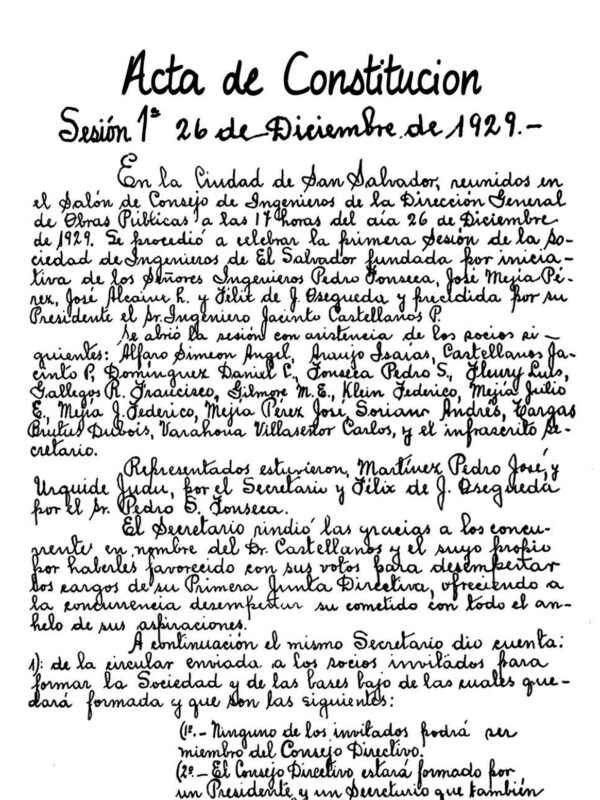 Acta de Constitucion
Sesión 1ª 26 de Diciembre de 1929.-
En la Ciudad de San Salvador, reunidos en
el Salón de Consejo de Ingenieros de la Dirección General
de Obras Públicas a las 17 horas del día 26 de Diciembre
de 1929. Se procedió a celebrar la primera Sesión de la So-
ciedad de Ingenieros de El Salvador fundada por inicia-
tiva de los Señores Ingenieros Pedro Fonseca, José Mejía Pé-
rez, José Alcaine h. y Félix de J. Osegueda y precidida por su
Presidente el Sr. Ingeniero Jacinto Castellanos P.
Se abrió la sesión con asistencia de los socios si-
guientes: Alfaro Simeon Angel, Araujo Isaías, Castellanos Ja-
cinto P, Domínguez Daniel E., Fonseca Pedro S., Fleury Luis,
Gallegos R. Francisco, Gilmore M.E., Klein Federico, Mejía Julio
E., Mejía J. Federico, Mejía Pérez José, Soriano Andrés, Vargas
Brutus Dubois, Varahona Villaseñor Carlos, y el infrascrito Se-
cretario.
Representados estuvieron, Martínez Pedro José, y
Urquide Juan, por el Secretario y Félix de J. Osegueda
por el Sr. Pedro S. Fonseca.
El Secretario rindió las gracias a los concu-
rrente en nombre del Dr. Castellanos y el suyo propio
por haberles favorecido con sus votos para desempeñar
los cargos de su Primera Junta Directiva, ofreciendo a
la concurrencia desempeñar su cometido con todo el an-
helo de sus aspiraciones.
A continuación el mismo Secretario dio cuenta:
1): de la circular enviada a los socios invitados para
formar la Sociedad y de las bases bajo de las cuales que-
dará formada y que son las siguientes:
(1º.- Ninguno de los invitados podrá ser
miembro del Consejo Directivo.
(2º.- El Consejo Directivo estará formado por
un Presidente y un Secretario que también